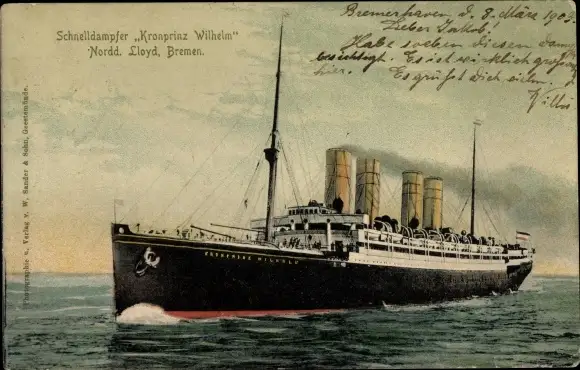 Schnelldampfer „Kronprinz Wilhelm"
Nordd. Lloyd, Bremen.
Bremerhaven d. 8. März 190
Lieber Jakob,
Habe soeben diesen Damp
besichtigt. Es ist wirklich großa
hier. Es grüßt Dich
Willi
Photographie u. Verlag v. W. Sander & Sohn, Geestemünde.
KRONPRINZ WILHELM